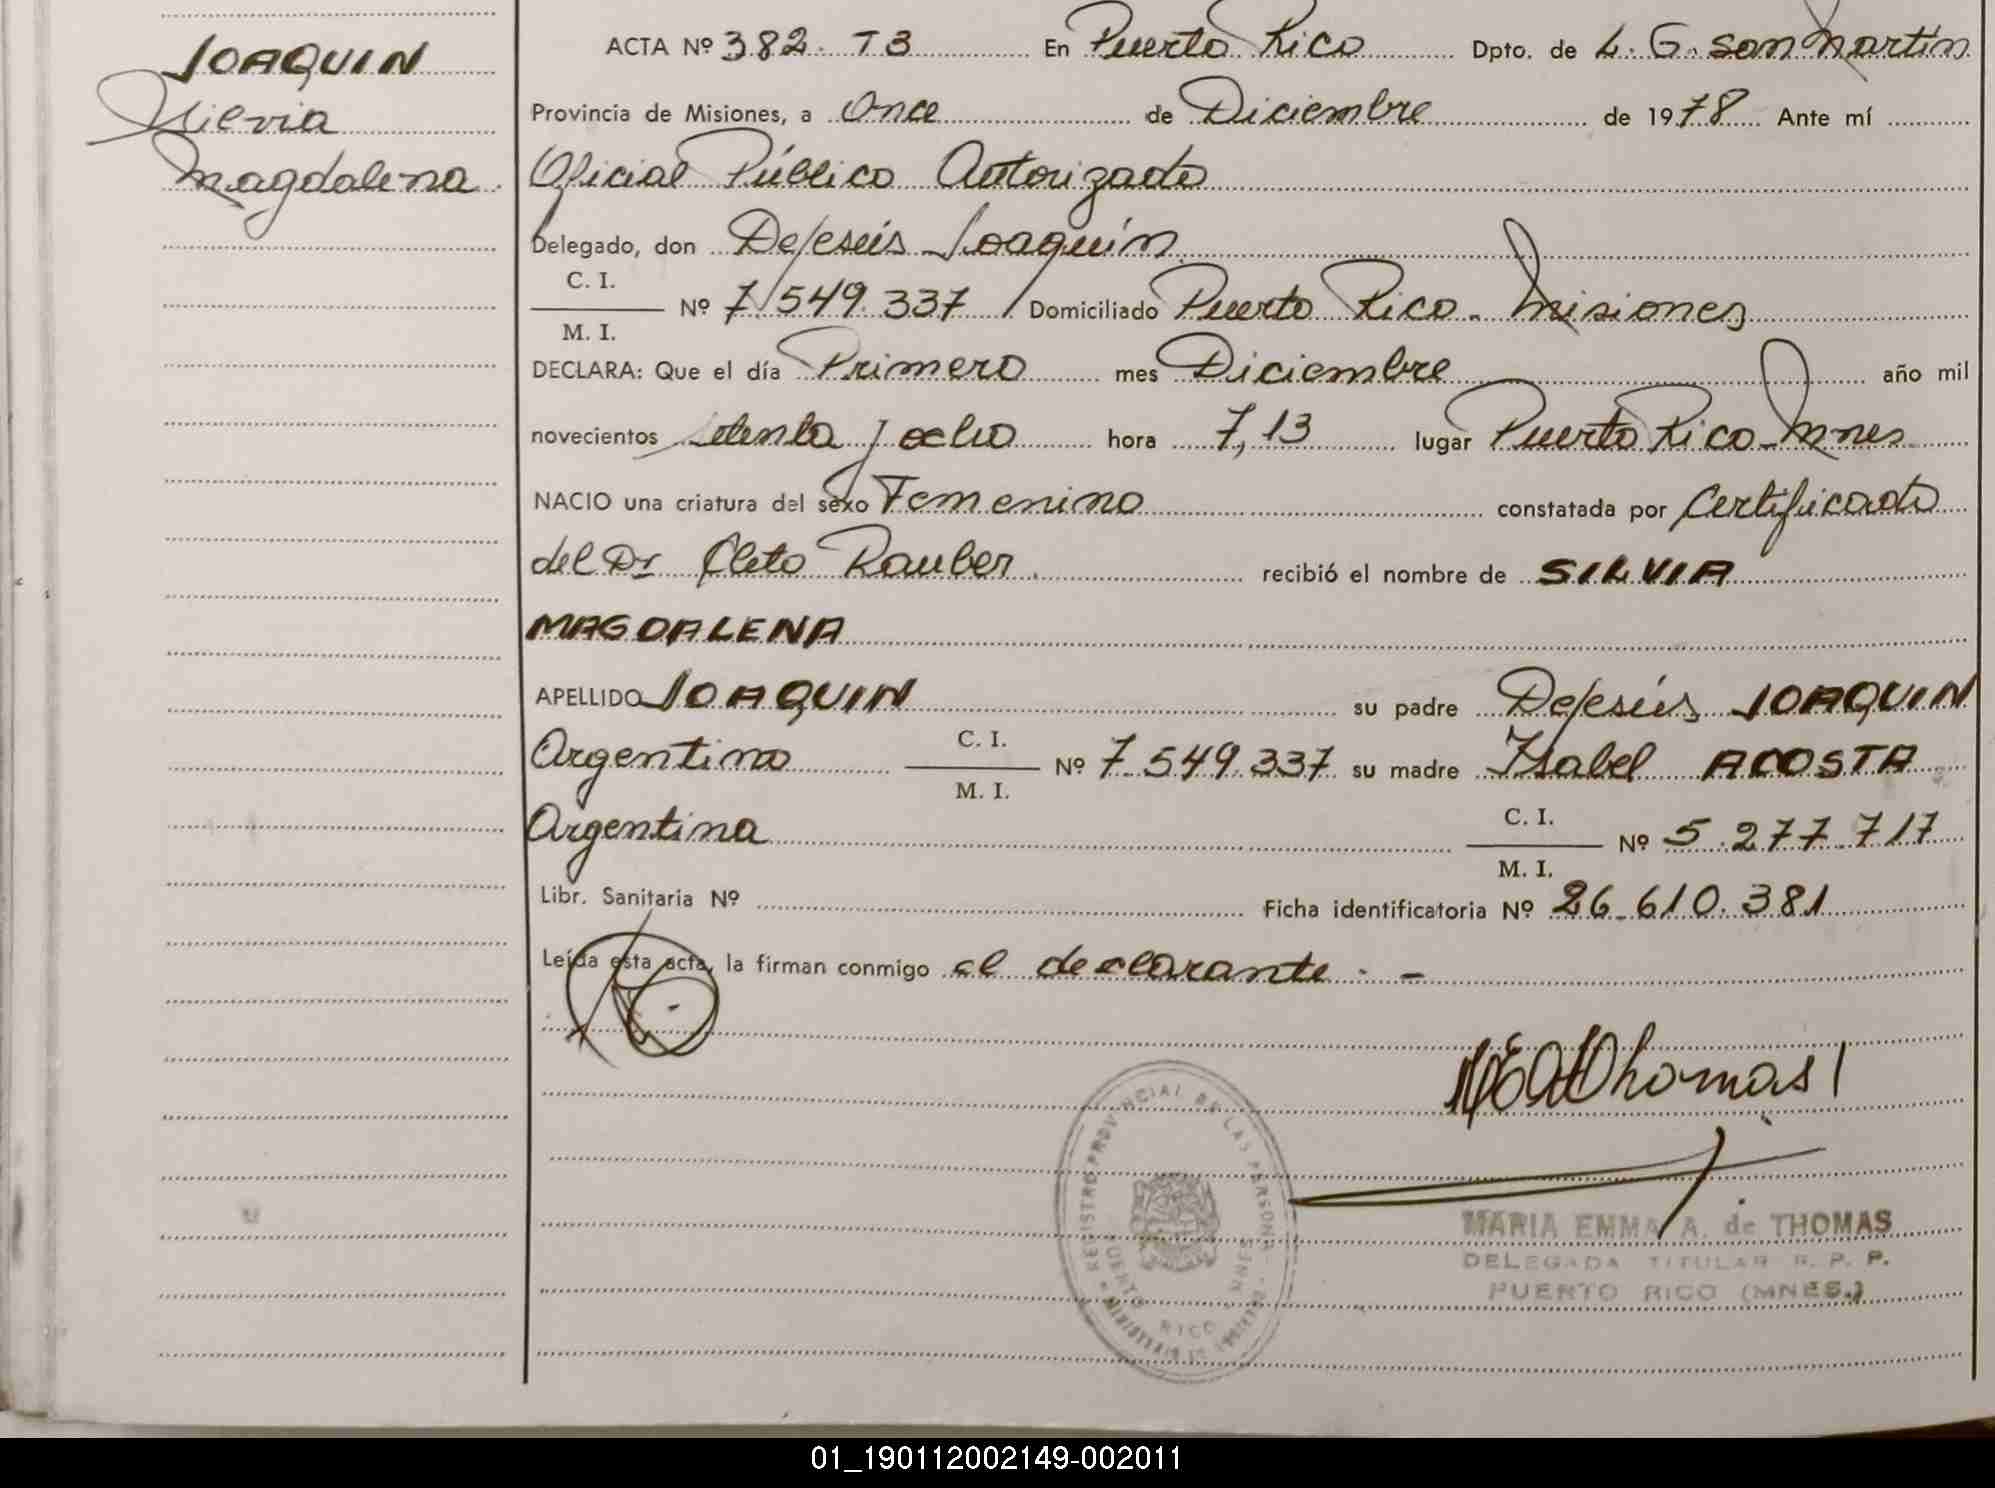 JOAQUIN
Silvia
Magdalena.
ACTA Nº 382. T3 En Puerto Rico Dpto. de L. G. San Martín
Provincia de Misiones, a Once de Diciembre de 1978 Ante mí
Oficial Público Autorizado
Delegado, don DeJesús Joaquín
C. I.
M. I.
Nº 7.549.337 Domiciliado Puerto Rico - Misiones
DECLARA: Que el día Primero mes Diciembre año mil
novecientos setenta y ocho hora 7,13 lugar Puerto Rico - Mnes
NACIO una criatura del sexo Femenino constatada por Certificado
del Dr Cleto Rauber recibió el nombre de SILVIA
MAGDALENA
APELLIDO JOAQUIN su padre DeJesús JOAQUIN
Argentino C. I. M. I. Nº 7.549.337 su madre Isabel ACOSTA
Argentina C. I. M. I. Nº 5.277.717
Libr. Sanitaria Nº Ficha identificatoria Nº 26.610.381
Leída esta acta, la firman conmigo el declarante. -
Thomas
REGISTRO PROVINCIAL DE LAS PERSONAS
PUERTO RICO
MNES
MARIA EMMA A. de THOMAS
DELEGADA TITULAR R. P. P.
PUERTO RICO (MNES.)
01_190112002149-002011